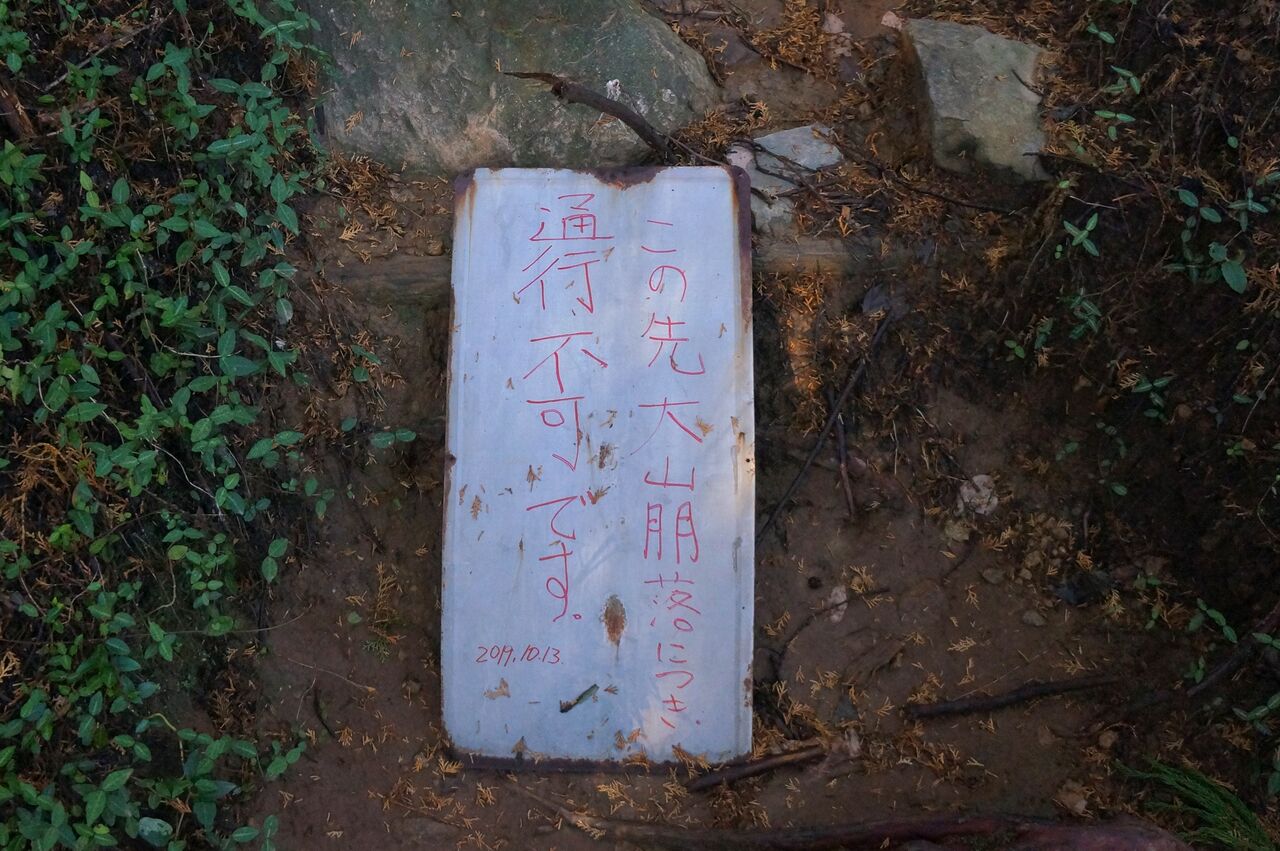 この先大山崩落につき
通行不可です。
2019.10.13.